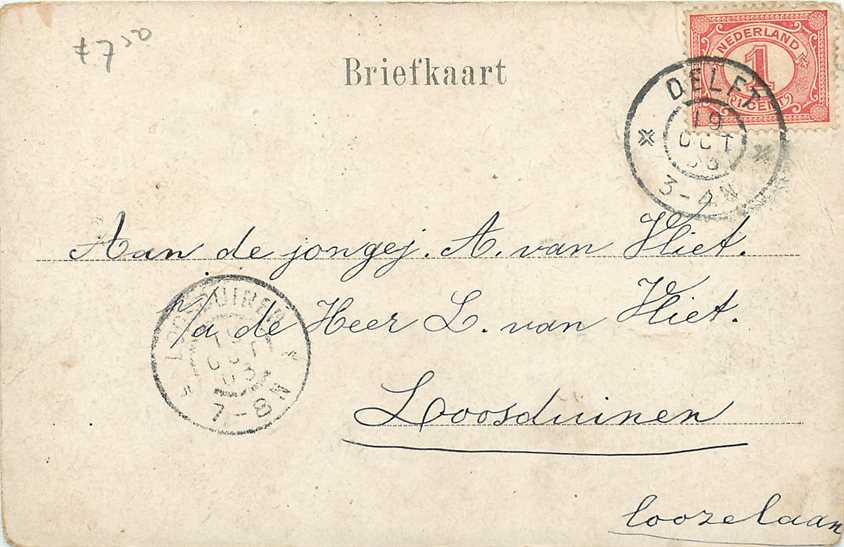 f 750
Briefkaart
NEDERLAND
1
CENT
DELFT
19
OCT
3-4N
Aan de jongej. A. van Vliet.
p/a de Heer L. van Vliet.
LOOSDUINEN
7-8N
Loosduinen
Loozelaan